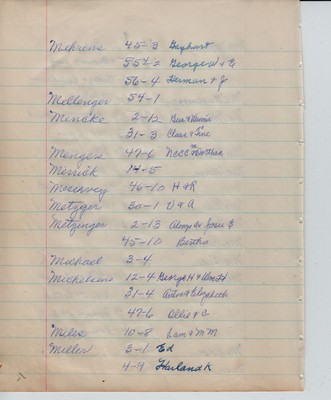 Mehrens 45-3 Gephart
55 1/2 George W & G
56-4 Herman & J
Mellenger 54-1
Mincke 2-12 Geo &
31-3 Claus & Sine
Menges 47-6
Merrick 14-5
Meservey 46-10 H & R
Metzger 30-1 V & A
Metzinger 2-13
45-10 Bertha
Michael 3-4
Michelsen 12-4 George H &
31-4 Anton & Elizabeth
47-6 Ollie & C
Miles 10-8 Sam & MM
Miller 3-1 Ed
4-9 Harland K